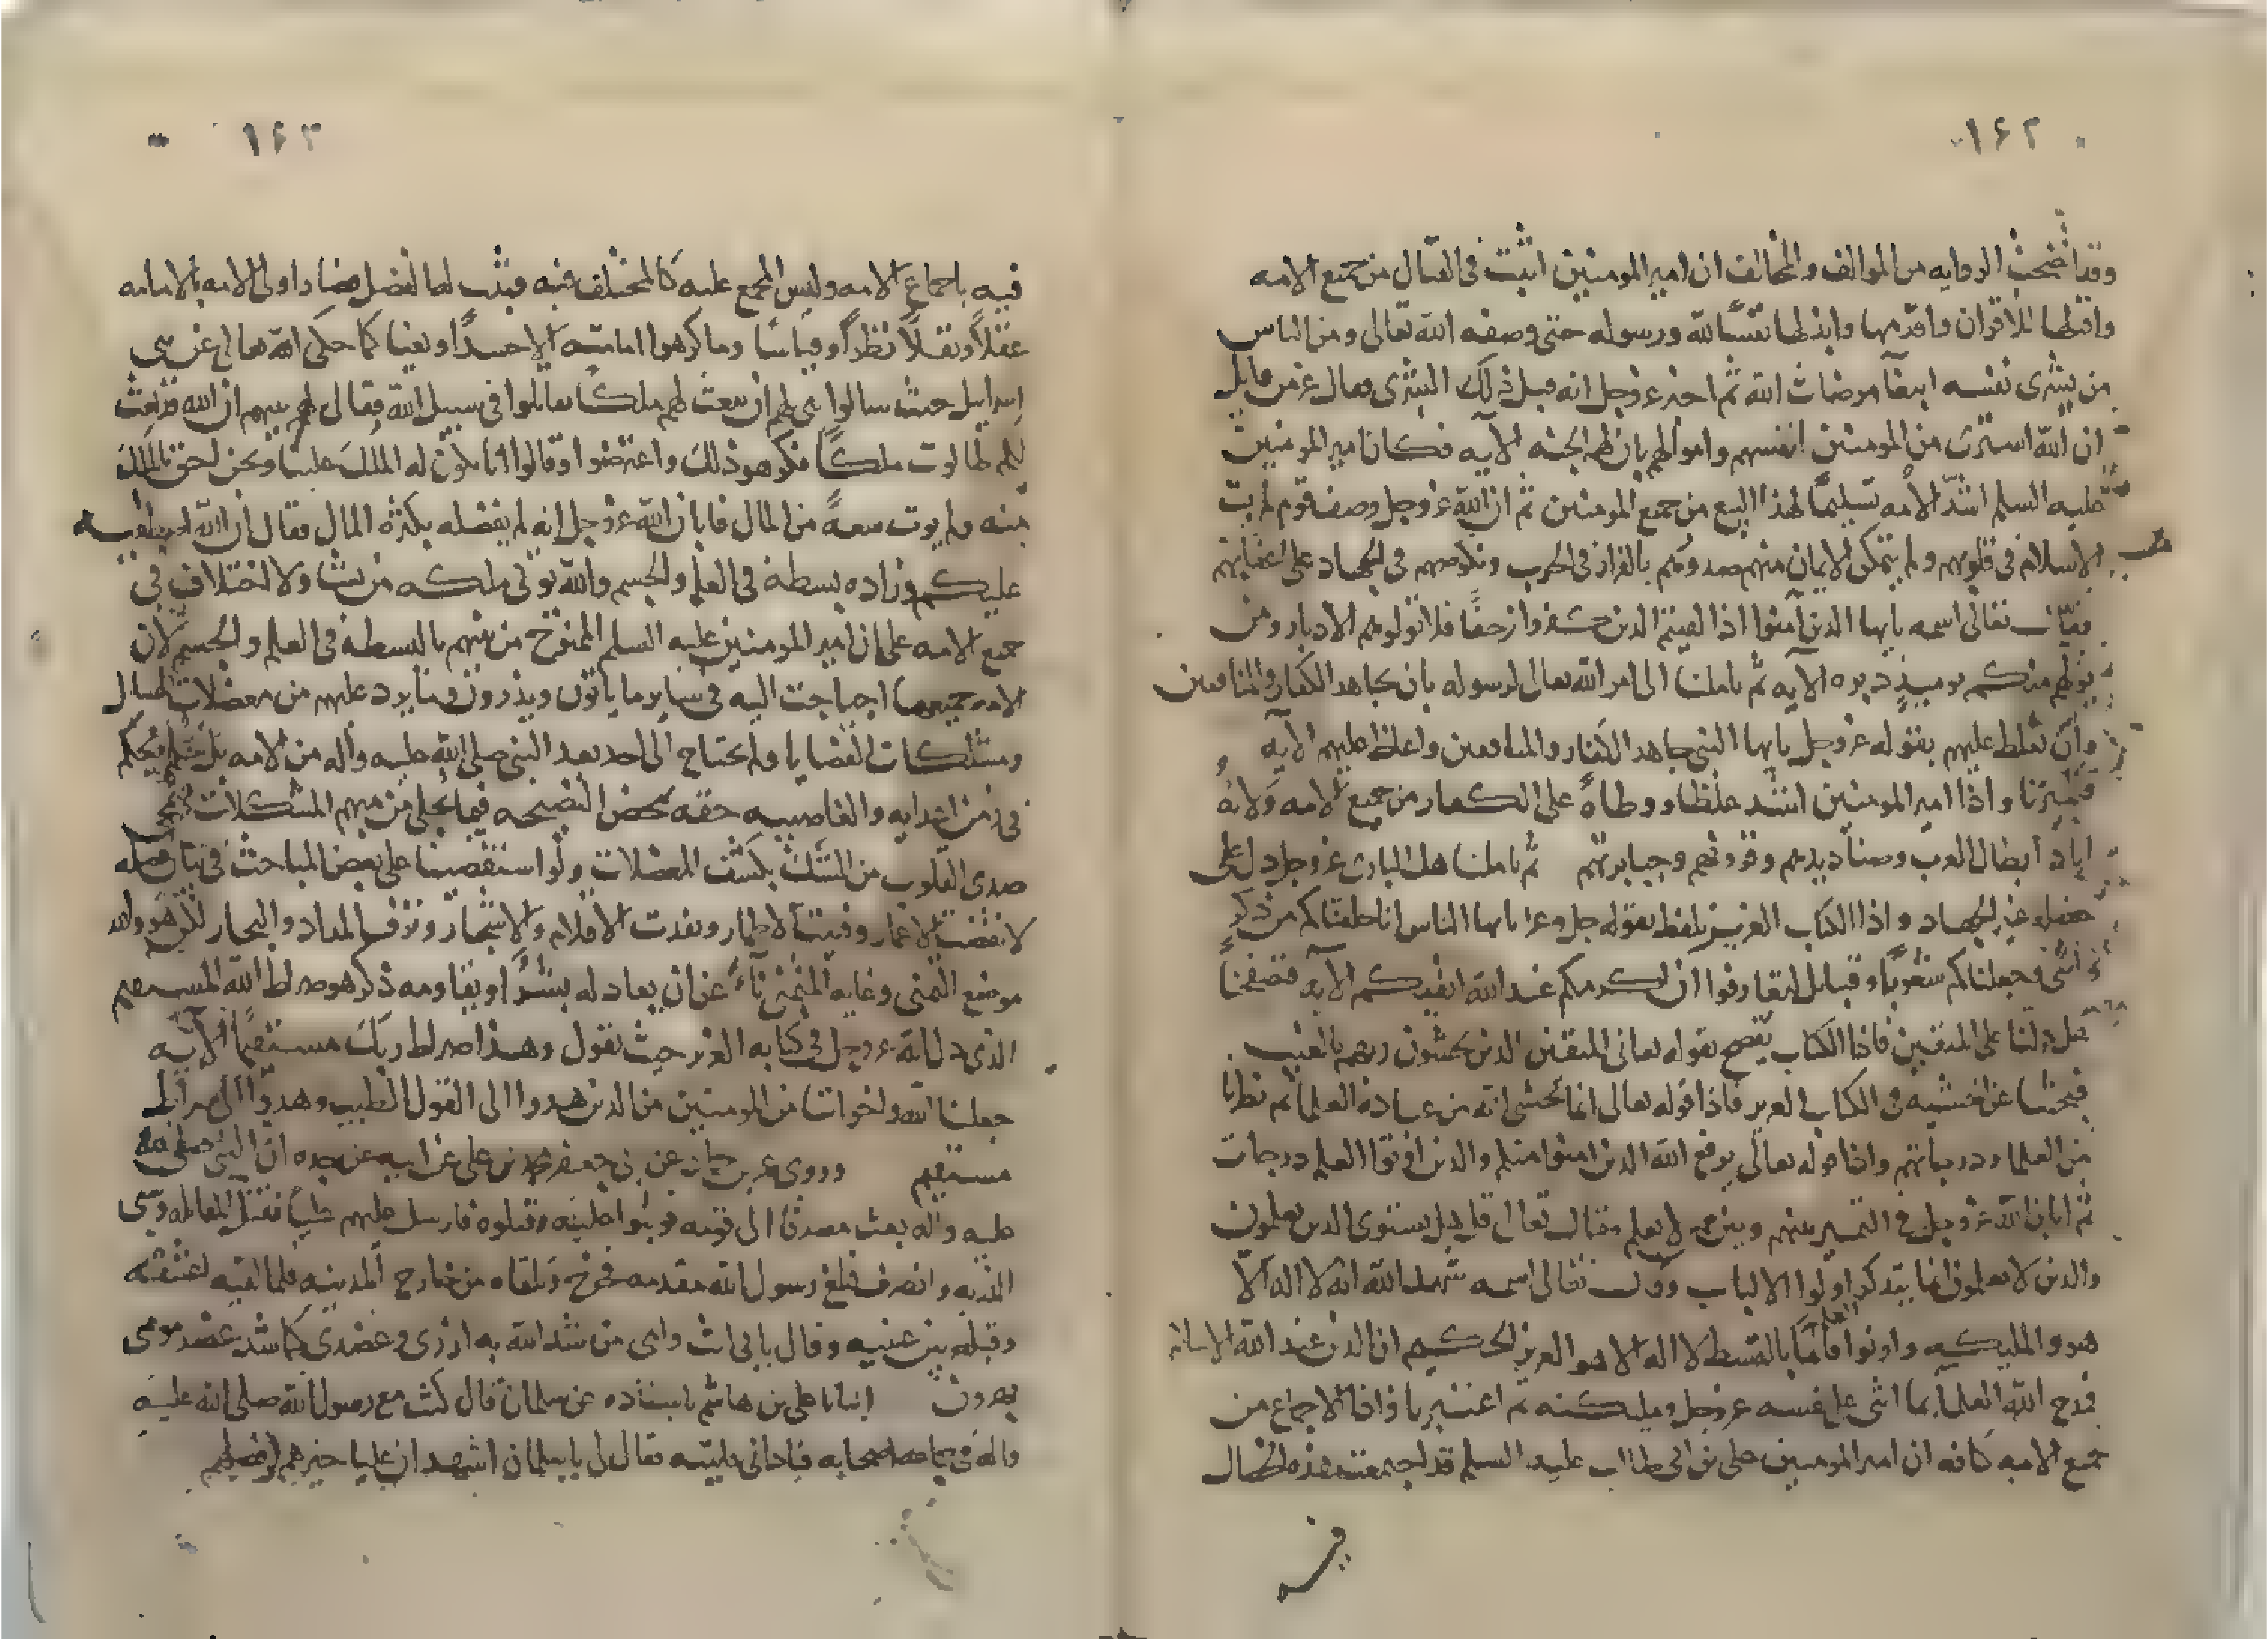 ١٦٢
وقد اتضحت الروايه من الموالف والمخالف ان امير المومنين اثبت فى القتال من جميع الامه
واقتلها للاقران واقدمها وابذلها نفسًا لله ورسوله حتى وصفه الله تعالى ومن الناس
من يشرى نفسه ابتغآ مرضات الله ثم اخبر عز وجل انه قبل ذلك الشرى فقال عز من قايل
ان الله اشترى من المومنين انفسهم واموالهم بان لهم الجنه الآيه فكان امير المومنين
عليه السلم اشد الامه تسليمًا لهذا البيع من جميع المومنين ثم ان الله عز وجل وصف قوم لم يثبت
الاسلام فى قلوبهم ولم يتمكن الايمان منهم صدورهم بالفرار فى الحرب ونكوصهم فى الجهاد على اعقابهم
فقال تعالى اسمه يايها الذين آمنوا اذا لقيتم الذين كفروا زحفًا فلا تولوهم الادبار ومن
يولهم منكم يوميذٍ دبره الآيه ثم تاملنا الى امر الله تعالى لرسوله بان يجاهد الكفار والمنافقين
وان يغلظ عليهم بقوله عز وجل يايها النبى جاهد الكفار والمنافقين واغلظ عليهم الآيه
فميزنا واذا امير المومنين اشد غلظا ووطاةً على الكفار من جميع الامه ولانه
اباد ابطال العرب وصناديدهم وقرونهم وجبابرتهم ثم تاملنا هل البارئ عز وجل دل على
فضلٍ غير الجهاد واذا الكتاب العزيز يلفظ بقوله جل وعز يايها الناس انا خلقناكم من ذكر
وانثى وجعلناكم شعوبًا وقبايل لتعارفوا ان اكرمكم عند الله اتقيكم الآيه فتصفحنا
هل دلنا على المتقين فاذا الكتاب يفصح بقوله تعالى المتقين الذين يخشون ربهم بالغيب
فبحثنا عن الخشيه فى الكتاب العزيز فاذا قوله تعالى انما يخشى الله من عباده العلمآ ثم نظرنا
من العلما ودرجاتهم واذا قوله تعالى يرفع الله الذين امنوا منكم والذين اوتوا العلم درجات
ثم ابان الله عز وجل فى التمييز بينهم وبين من لا يعلم فقال تعالى قل هل يستوى الذين يعلمون
والذين لا يعلمون انما يتذكر اولوا الالباب وقال تعالى اسمه شهد الله انه لا اله الا
هو والمليكه واولوا العلم قآيمًا بالقسط لا اله الا هو العزيز الحكيم ان الدين عند الله الاسلام
فمدح الله العلمآ بما اثنى على نفسه عز وجل ومليكته ثم اعتبرنا فاذا الاجماع من
جميع الامه كافه ان امير المومنين على بن ابى طالب عليه السلم قد اجتمعت هذه الخصال
فيه
١٦٣
فيه باجماع الامه وليس المجمع عليه كالمختلف فيه فثبت لها الفضل فصار اولى الامه بالامامه
عقلًا ونقلًا نظرًا وقياسًا وما كرهوا امامته الا حسدًا وبغيا كما حكى الله تعالى عن بنى
اسرايل حيث سالوا نبى لهم ان يبعث لهم ملكًا يقاتلوا فى سبيل الله فقال لهم نبيهم ان الله قد بعث
لكم طالوت ملكًا فكرهو ذلك واعترضوا وقالوا انا يكون له الملك علينا ونحن احق بالملك
منه ولم يوت سعةً من المال فابان الله عز وجل انه لم يفضله بكثرة المال فقال ان الله اصطفيه
عليكم وزاده بسطة فى العلم والجسم والله يوتى ملكه من يشا ولا اختلاف فى
جميع الامه على ان امير المومنين عليه السلم الممنوح من بينهم بالبسطة فى العلم والجسم لان
الامه جميعها احتاجت اليه فى ساير ما ياتون ويذرون وما يرد عليهم من معضلات المسايل
ومشكلات القضايا ولم يحتاج الى احد بعد النبى صلى الله عليه وآله من الامه بل حكم بحكم
فى زمن اعدايه والغاصبيه حقه بمحض النصيحه فيما يجلى من مبهم المشكلات
صدى القلوب من الشك بكشف المعضلات ولو استقصينا على بعض المباحث فى بيان فضله
لانقضت الاعمار وفنيت الاطمار ونفدت الاقلام والاشجار ونزفت المداد والبحار
موضع التمنى وغايه المتمنى نآء عن ان يعادله بشرًا ويقاومه ذكر هو صراط الله المستقيم
الذى دل الله عز وجل فى كتابه العزيز حيث يقول وهذا صراط ربك مستقيمًا الآيه
جعلنا الله واخواننا من المومنين من الذين هدوا الى القول الطيب وهدوا الى صراط
مستقيم وروى عن بن عن بى جعفر محمد بن على عن ابيه عن جده ان النبى صلى الله
عليه وآله بعث مصدقًا الى قومه فوثبوا عليه وقتلوه فارسل عليهم عليًا فقتل المقاتله وسبى
الذريه وانصرف فبلغ رسول الله مقدمه فخرج وتلقاه من خارج المدينه فلما لقيه اعتنقه
وقبله بين عينيه وقال بابى انت وامى من شد الله به ازرى وعضدى كما شد عضد موسى
بهرون انبانا على بن هاشم باسناده عن سلمان قال كنت مع رسول الله صلى الله عليه
واله فى جماعه اصحابه فنادانى فلبيته فقال لى يا سلمان اشهد ان عليا خيرهم وافضلهم